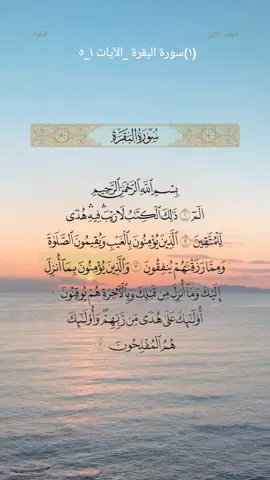 الجزء الأول
البقرة
(١)سورة البقرة _الآيات ١_٥
سُورَةُ البَقَرَةِ
بِسْمِ اللَّهِ الرَّحْمَٰنِ الرَّحِيمِ
الٓمٓ ١ ذَٰلِكَ الْكِتَٰبُ لَا رَيْبَ ۛ فِيهِ ۛ هُدًى
لِّلْمُتَّقِينَ ٢ الَّذِينَ يُؤْمِنُونَ بِالْغَيْبِ وَيُقِيمُونَ الصَّلَوٰةَ
وَمِمَّا رَزَقْنَٰهُمْ يُنفِقُونَ ٣ وَالَّذِينَ يُؤْمِنُونَ بِمَا أُنزِلَ
إِلَيْكَ وَمَا أُنزِلَ مِن قَبْلِكَ وَبِالْآخِرَةِ هُمْ يُوقِنُونَ ٤
أُولَٰئِكَ عَلَىٰ هُدًى مِّن رَّبِّهِمْ ۖ وَأُولَٰئِكَ
هُمُ الْمُفْلِحُونَ ٥